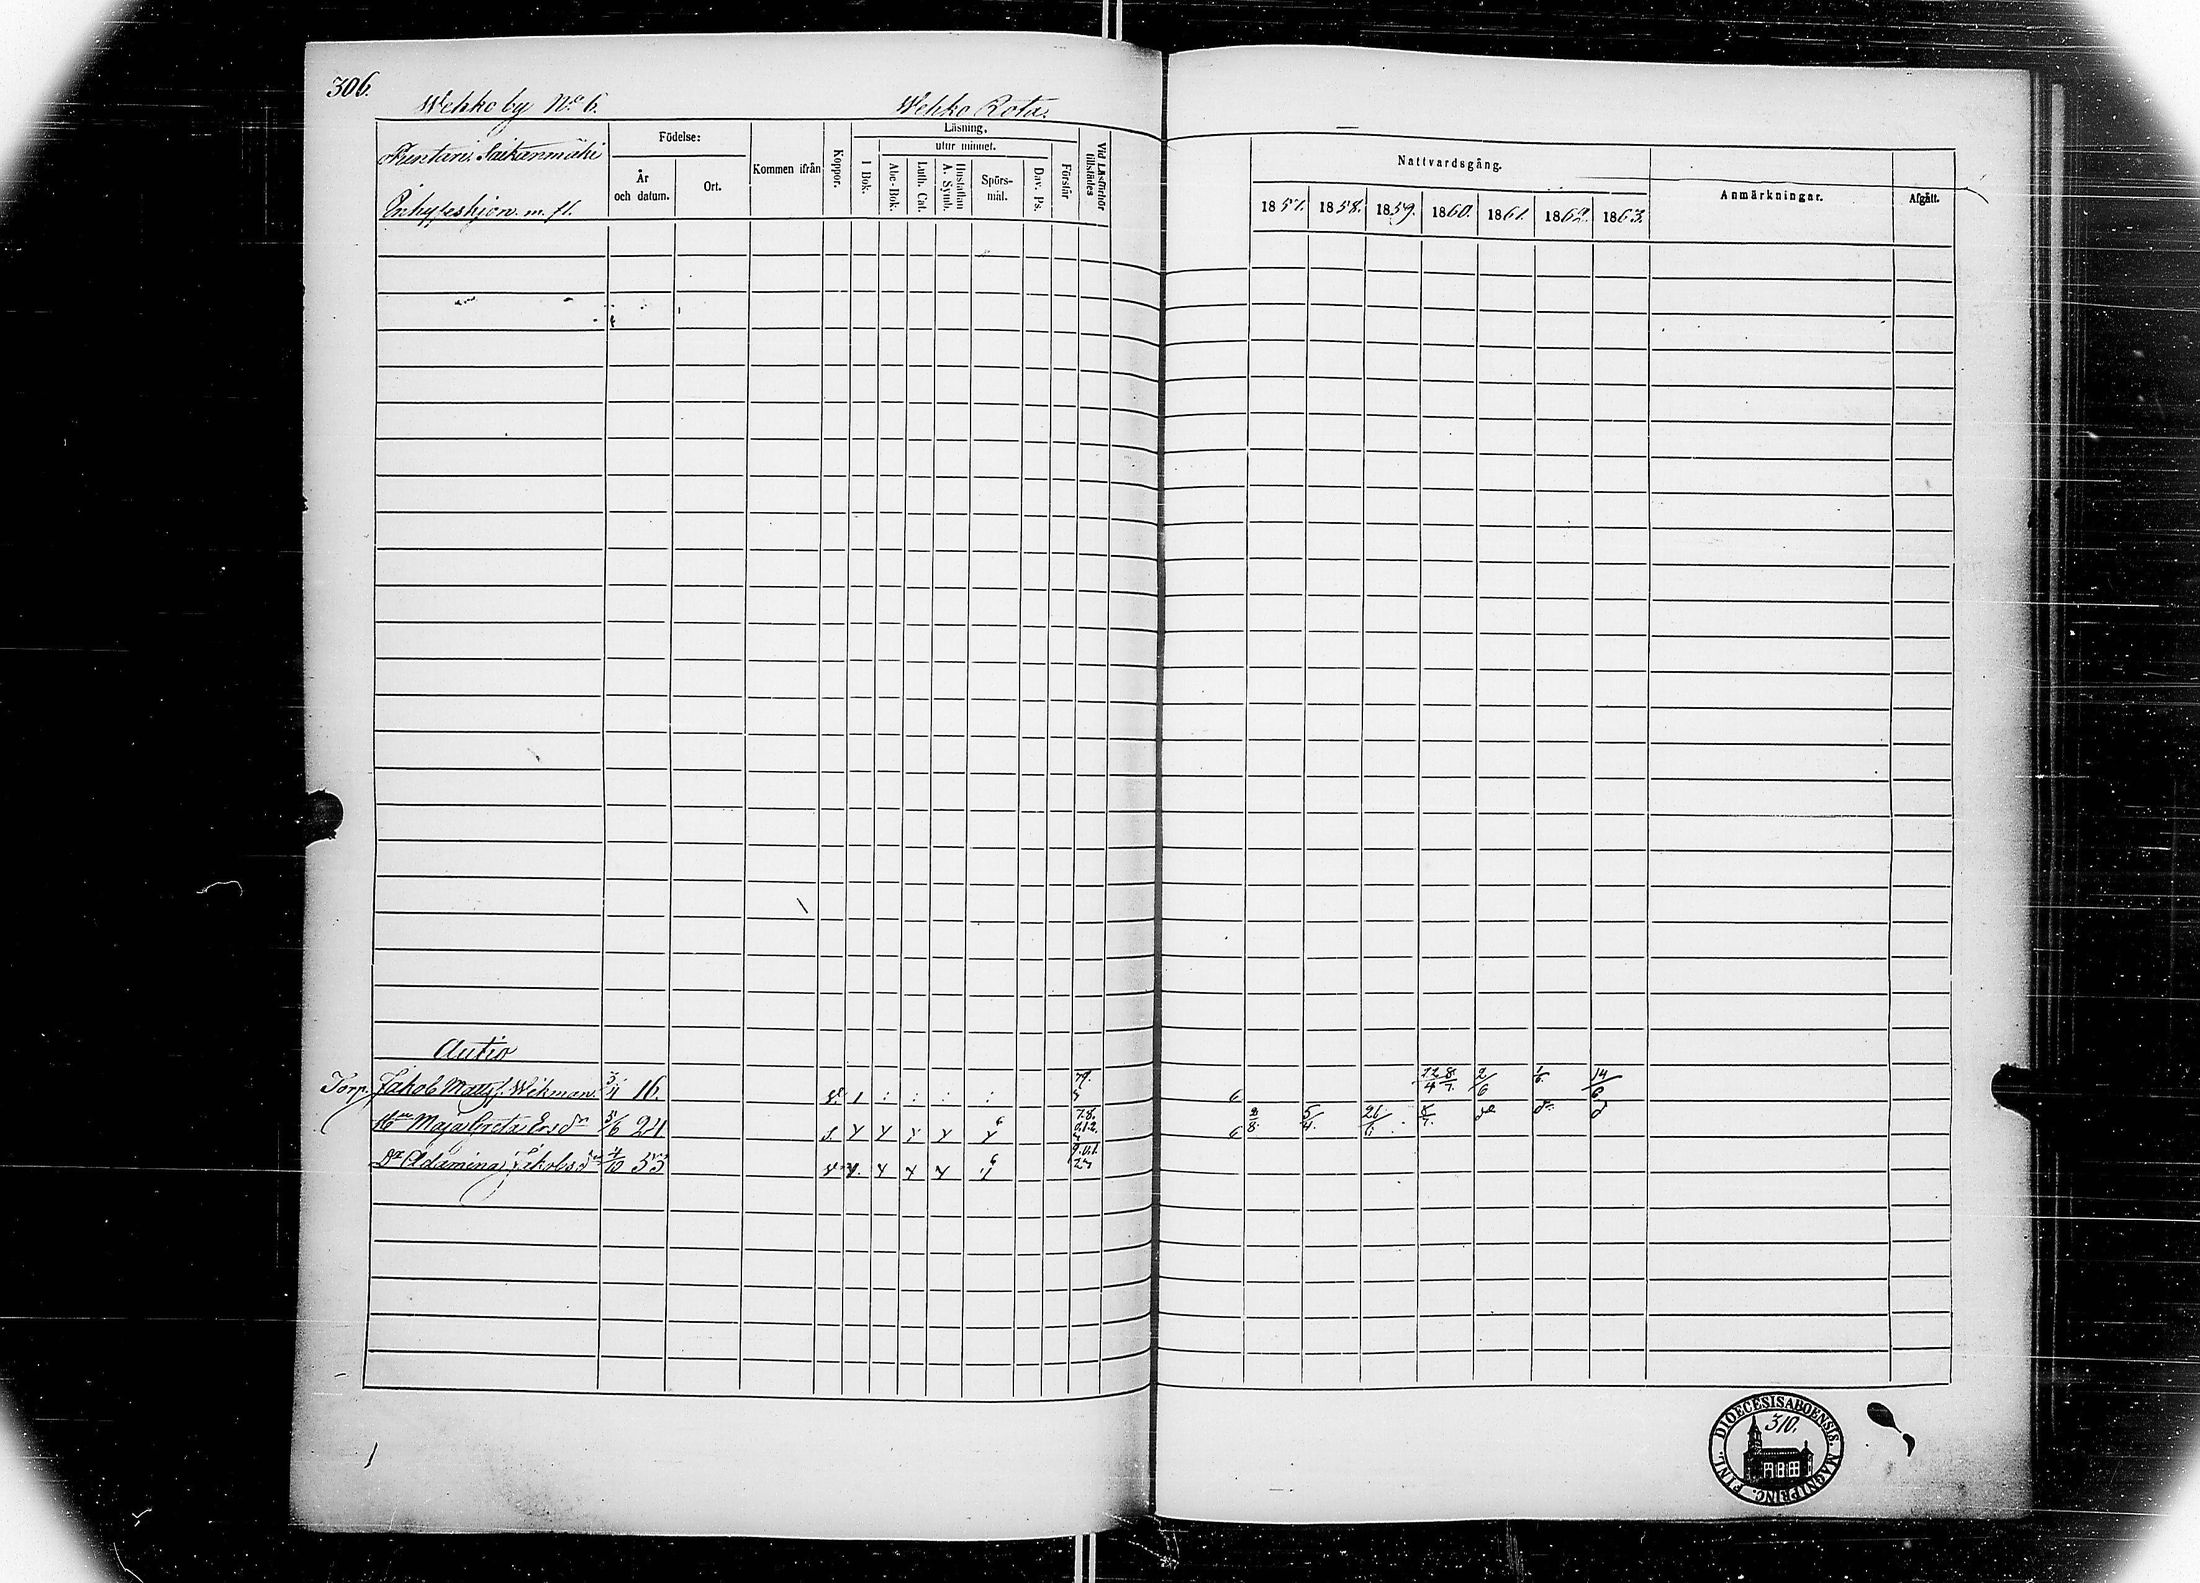 306.
Wehko by No 6.
Wehko Rota.
Puntari Saikanmäki
Inhyseshjon m. fl.
Födelse:
År
och datum.
Ort.
Kommen ifrån
Koppor.
Läsning.
utur minnet.
I Bok.
Abc-Bok.
Luth. Cat.
Hustaflan
A. Symb.
Spörs-
mål.
Dav. Ps.
Förstår
Vid Läsförhör
tillstädes
Nattvardsgång.
1857. 1858. 1859. 1860. 1861. 1862. 1863.
Anmärkningar.
Afgått.
Autio
Torp. Jakob Matts f. Wikman 3/4 16. 12/4 8/7 2/6 1/6 14/6
Hu Maja Greta Ers dr 5/6 24. 9/8 5/4 26/6 8/7
Dr Adamina Jakobs dr 4/10 53
FINL. DIOECESIS ABOENSIS. MAGNI PRINC.
310.